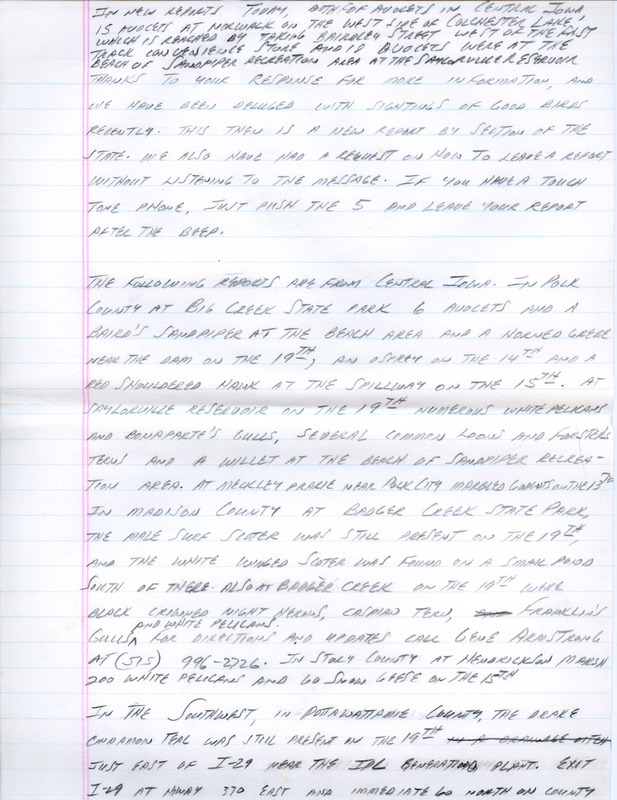 IN NEW REPORTS TODAY, BOTH OF AVOCETS IN CENTRAL IOWA,
15 AVOCETS AT NORWALK ON THE WEST SIDE OF COLCHESTER LAKE,
WHICH IS REACHED BY TAKING BEARDSLEY STREET WEST OF THE FAST
TRACK CONVENIENCE STORE AND 18 AVOCETS WERE AT THE
BEACH OF SANDPIPER RECREATION AREA AT THE SAYLORVILLE RESERVOIR
THANKS TO YOUR RESPONSE FOR MORE INFORMATION, AND
WE HAVE BEEN DELUGED WITH SIGHTINGS OF GOOD BIRDS
RECENTLY. THIS THEN IS A NEW REPORT BY SECTION OF THE
STATE. WE ALSO HAVE HAD A REQUEST ON HOW TO LEAVE A REPORT
WITHOUT LISTENING TO THE MESSAGE. IF YOU HAVE A TOUCH
TONE PHONE, JUST PUSH THE 5 AND LEAVE YOUR REPORT
AFTER THE BEEP.
THE FOLLOWING REPORTS ARE FROM CENTRAL IOWA. IN POLK
COUNTY AT BIG CREEK STATE PARK 6 AVOCETS AND A
BAIRD'S SANDPIPER AT THE BEACH AREA AND A HORNED GREBE
NEAR THE DAM ON THE 19TH, AN OSPREY ON THE 14TH AND A
RED SHOULDERED HAWK AT THE SPILLWAY ON THE 15TH. AT
SAYLORVILLE RESERVOIR ON THE 19TH NUMEROUS WHITE PELICANS
AND BONAPARTE'S GULLS, SEVERAL COMMON LOONS AND FORSTER'S
TERNS AND A WILLET AT THE BEACH OF SANDPIPER RECREA-
TION AREA. AT MCKLEY PRARIE NEAR POLK CITY MARBLED GODWITS ON THE 13TH
IN MADISON COUNTY AT BADGER CREEK STATE PARK,
THE MALE SURF SCOTER WAS STILL PRESENT ON THE 19TH,
AND THE WHITE WINGED SCOTER WAS FOUND ON A SMALL POND
SOUTH OF THERE. ALSO AT BADGER CREEK ON THE 19TH WERE
BLACK CROWNED NIGHT HERONS, CASPIAN TERN, FRANKLIN'S
GULLS AND WHITE PELICANS. FOR DIRECTIONS AND UPDATES CALL GENE ARMSTRONG
AT (515) 996-2726. IN STORY COUNTY AT HENDRICKSON MARSH
200 WHITE PELICANS AND 60 SNOW GEESE ON THE 15TH
IN THE SOUTHWEST, IN POTTAWATTAMIE COUNTY, THE DRAKE
CINNAMON TEAL WAS STILL PRESENT ON THE 19TH IN A DRAINAGE DITCH
JUST EAST OF I-29 NEAR THE IPL GENERATING PLANT. EXIT
I-29 AT HIWAY 370 EAST AND IMMEDIATE GO NORTH ON COUNTY